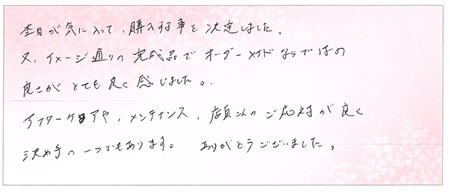 本日が気に入って、購入する事を決定しました。
又、イメージ通りの完成品でオーダーメイドならではの
良さがとても良く感じました。
アフターケアや、メンテナンス、店員さんのご応対が良く
決め手の一つでもあります。 ありがとうございました。